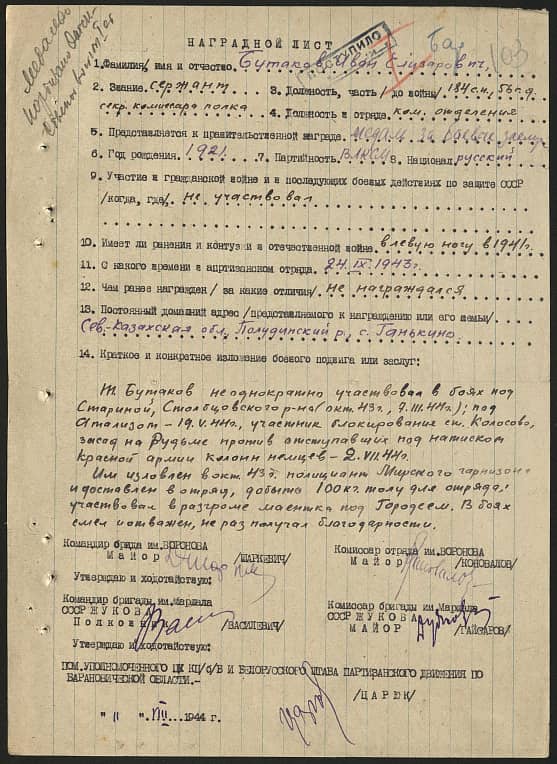 103
НАГРАДНОЙ ЛИСТ
1.Фамилия, имя и отчество. Бутаков Иван Елизарович,
2. Звание. сержант 3. Должность, часть /до войны/ 184 с.п. 56 с.д.
секр. комиссара полка 4. Должность в отряде. ком. отделения
5. Представляется к правительственной награде. медаль "За боевые заслуги"
6. Год рождения. 1921. 7. Партийность. ВЛКСМ 8. Национал. русский
9. Участие в гражданской войне и в последующих боевых действиях по защите СССР
/когда, где/. не участвовал
10. Имеет ли ранения и контузии в отечественной войне. в левую ногу в 1941г.
11. С какого времени в апртизанском отряде. 24.IX.1943г.
12. Чем ранее награжден / за какие отличия/. не награждался
13. Постоянный домашний адрес /представляемого к награждению или его семьи/
Сев.-Казахская обл., Полудинский р., с. Ганькино.
14. Краткое и конкретное изложение боевого подвига или заслуг:
Т. Бутаков неоднократно участвовал в боях под
Стариной, Столбцовского р-на (окт. 43г., 7.III.44г.); под
Атализот - 19.V.44г., участник блокирования ст. Колосово,
засад на Рудьме против отступавших под натиском
Красной армии колонн немцев - 2.VII.44г.
Им изловлен в окт. 43г. полициант Мирского гарнизона
и доставлен в отряд, добыто 100 кг. толу для отряда;
участвовал в разгроме маентка под Городеем. В боях
смел и отважен, не раз получал благодарности.
Командир отряда им.ВОРОНОВА
Майор /ШАРКЕВИЧ/
Комиссар отряда им.ВОРОНОВА
Майор /КОНОВАЛОВ/
Утверждаю и ходотайствую:
Командир бригады им.Маршала
СССР ЖУКОВА
Полковник /ВАСИЛЕВИЧ/
Комиссар бригады им. Маршала
СССР ЖУКОВА
МАЙОР /ГАЙСАРОВ/
Утверждаю и ходотайствую:
ПОМ.УПОЛНОМОЧЕННОГО ЦК КП/б/Б И БЕЛОРУССКОГО ШТАБА ПАРТИЗАНСКОГО ДВИЖЕНИЯ ПО
БАРАНОВИЧЕСКОЙ ОБЛАСТИ.-
/ЦАРЮК/
" " VII...1944 г.